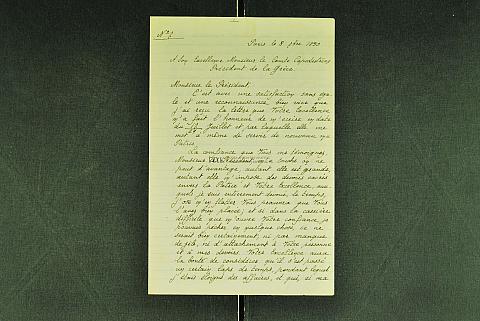 Nº 7
Paris le 8 9bre 1830
A Son Excellence Monsieur le Comte Capodistrias
Président de la Grèce.
Monsieur le Président,
C'est avec une satisfaction sans éga-
le et une reconnaissance bien vive que
j'ai reçu la lettre que Votre Excellence
m'a fait l'honneur de m'écrire en date
du Juillet et par laquelle elle me
met à même de servir de nouveau ma
Patrie.
La confiance que Vous me témoignez,
Monsieur le Président, m'a touché on ne
peut d'avantage, autant elle est grande,
autant elle m'impose des devoirs sacrés
envers la Patrie et Votre Excellence, aux
quels je suis entièrement dévoué, le temps,
j'ose m'en flatter Vous prouvera que Vous
l'avez bien placée, et si dans la carrière
difficile que m'ouvre Votre confiance, je
pouvais pécher en quelque chose, ce ne
serait bien certainement, ni par manque
de zèle, ni d'attachement à Votre personne
et à mes devoirs. Votre Excellence aura
la bonté de considérer qu'il s'est passé
un certain laps de temps, pendant lequel
j'étais éloigné des affaires, et que, si ma